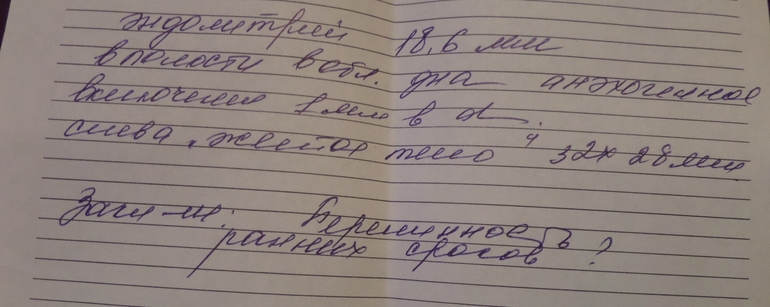 эндометрий 18,6 мм
в полости в обл. дна анэхогенное
включение 1 мм в d.
слева "желтое тело" 32х28мм
Закл-ие: Беременность
ранних сроков ?